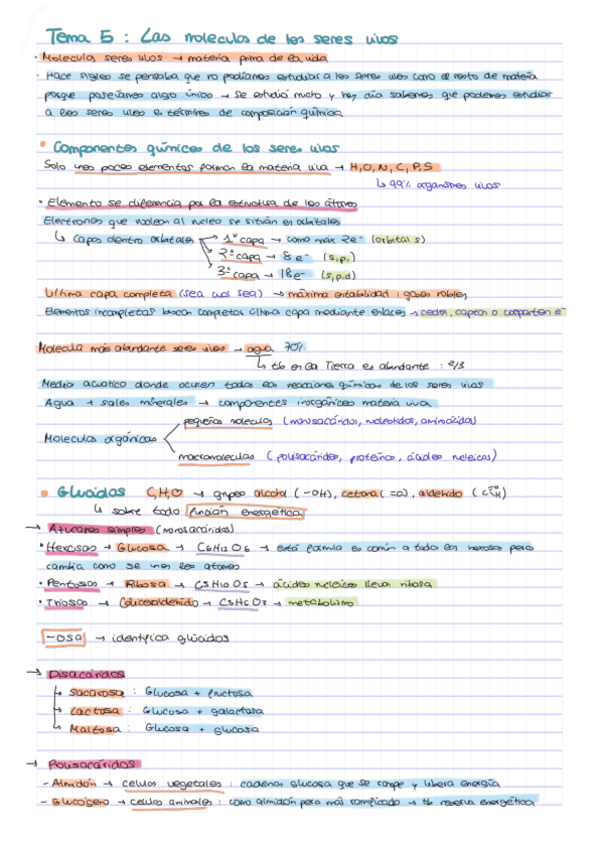 Tema 5 : Las moleculas de los seres vivos
· Molecula, seres vivos → materia prima de la vida
· Hace siglos se pensaba que no podíamos estudiar a los seres vivos como el resto de materia
porque poseíamos algo único → se estudió mucho y hoy día sabemos que podemos estudiar
a los seres vivos en términos de composición química.
• Componentes químicos de los seres vivos
Solo unos pocos elementos forman la materia viva → H, O, N, C, P, S
↳ 99% organismos vivos
• Elemento se diferencia por la estructura de los átomos
Electrones que rodean al nucleo se sitúan en orbitales
↳ Capas dentro orbitales → 1ª capa → como max 2e⁻ (orbital s)
2ª capa → 8e⁻ (s,p)
3ª capa → 18e⁻ (s,p,d)
Última capa completa (sea cual sea) → máxima estabilidad : gases nobles
Elementos incompletos buscan completar última capa mediante enlaces → ceden, captan o comparten e⁻
Molecula más abundante seres vivos → agua 70%
↳ tb en la Tierra es abundante : 2/3
Medio acuatico donde ocurren todas las reacciones químicas de los seres vivos
Agua + sales minerales → componentes inorgánicos materia viva
pequeñas moleculas (monosacáridos, nucleotidos, aminoácidos)
Moleculas orgánicas
macromoleculas (polisacáridos, proteínas, ácidos nucleicos)
• Glucidos C,H,O → grupos alcohol (-OH), cetona (=O), aldehido (C=O H)
↳ sobre todo función energética
→ Azucares simples (monosacáridos)
• Hexosas → Glucosa → C6H12O6 → esta formula es común a todas las hexosas pero
cambia como se unen los atomos
• Pentosas → Ribosa → C5H10O5 → ácidos nucleicos llevan ribosa
• Triosas → Gliceraldehido → C3H6O3 → metabolismo
-osa → identifica glúcidos
→ Disacáridos
↳ Sacarosa : Glucosa + fructosa
↳ Lactosa : Glucosa + galactosa
↳ Maltosa : Glucosa + glucosa
→ Polisacáridos
- Almidón → celulas vegetales : cadenas glucosa que se rompe y libera energía
- Glucógeno → celulas animales : como almidón pero más ramificado → tb reserva energética